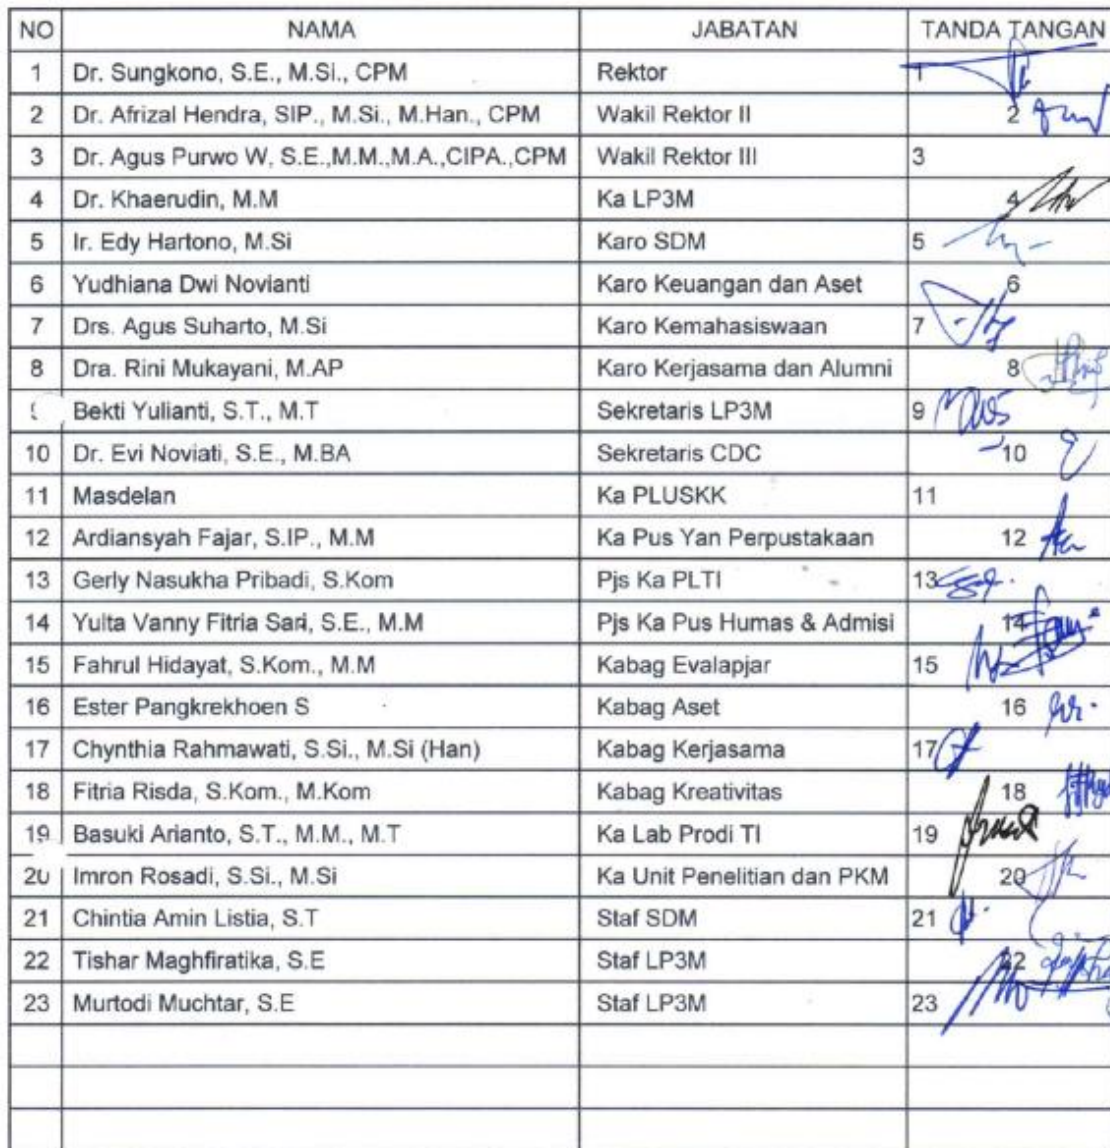 NO NAMA JABATAN TANDA TANGAN
1 Dr. Sungkono, S.E., M.Si., CPM Rektor 1
2 Dr. Afrizal Hendra, SIP., M.Si., M.Han., CPM Wakil Rektor II 2
3 Dr. Agus Purwo W, S.E.,M.M.,M.A.,CIPA.,CPM Wakil Rektor III 3
4 Dr. Khaerudin, M.M Ka LP3M 4
5 Ir. Edy Hartono, M.Si Karo SDM 5
6 Yudhiana Dwi Novianti Karo Keuangan dan Aset 6
7 Drs. Agus Suharto, M.Si Karo Kemahasiswaan 7
8 Dra. Rini Mukayani, M.AP Karo Kerjasama dan Alumni 8
Bekti Yulianti, S.T., M.T Sekretaris LP3M 9
10 Dr. Evi Noviati, S.E., M.BA Sekretaris CDC 10
11 Masdelan Ka PLUSKK 11
12 Ardiansyah Fajar, S.IP., M.M Ka Pus Yan Perpustakaan 12
13 Gerly Nasukha Pribadi, S.Kom Pjs Ka PLTI 13
14 Yulta Vanny Fitria Sari, S.E., M.M Pjs Ka Pus Humas & Admisi 14
15 Fahrul Hidayat, S.Kom., M.M Kabag Evalapjar 15
16 Ester Pangkrekhoen S Kabag Aset 16
17 Chynthia Rahmawati, S.Si., M.Si (Han) Kabag Kerjasama 17
18 Fitria Risda, S.Kom., M.Kom Kabag Kreativitas 18
19 Basuki Arianto, S.T., M.M., M.T Ka Lab Prodi TI 19
20 Imron Rosadi, S.Si., M.Si Ka Unit Penelitian dan PKM 20
21 Chintia Amin Listia, S.T Staf SDM 21
22 Tishar Maghfiratika, S.E Staf LP3M 22
23 Murtodi Muchtar, S.E Staf LP3M 23